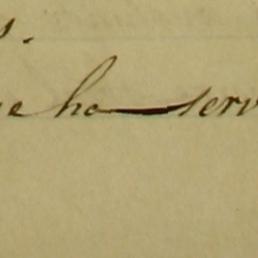 s.
e ho serv